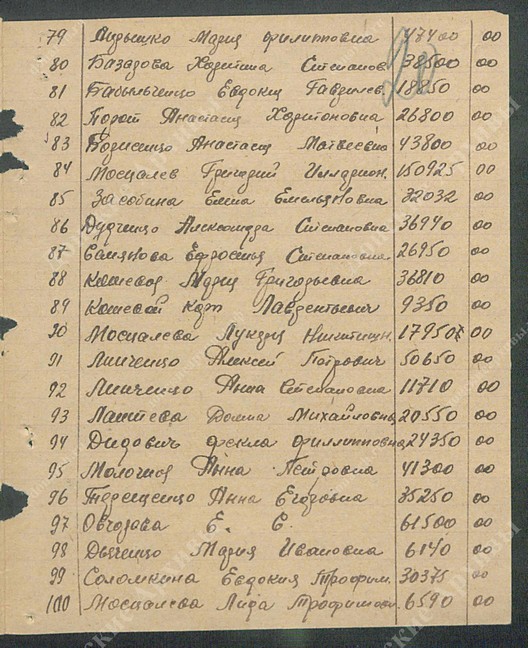 79 Мария Филипповна 47400 00
80 Базадова Степанов. 38500 00
81 Евдокия Гавдилов. 18850 00
82 Анастасия Харитоновна 26800 00
83 Борисенцо Анастасия Матвеевна 43800 00
84 Моспалев Григорий Илларион. 150925 00
85 Засобина Елена Емельяновна 32032 00
86 Дудченцо Александра Степановна 36940 00
87 Ефросенья Степановна 26950 00
88 Кошевая Мария Григорьевна 36810 00
89 Кошевой Лаврентьевич 9350 00
90 Моспалева Лукерья Никитишн. 179507 00
91 Линченцо Алексей Петрович 50650 00
92 Линченцо Анна Степановна 11710 00
93 Лаптева Домна Михайловна 20550 00
94 Дидович Фекла Филлиповна 24350 00
95 Анна Петровна 41300 00
96 Терещенцо Анна Егоровна 35250 00
97 Е. Е. 61500 00
98 Дьяченцо Мария Ивановна 6140 00
99 Соломкина Евдокия Трофим. 30375 00
100 Моспалева Лида Трофимовн. 6590 00